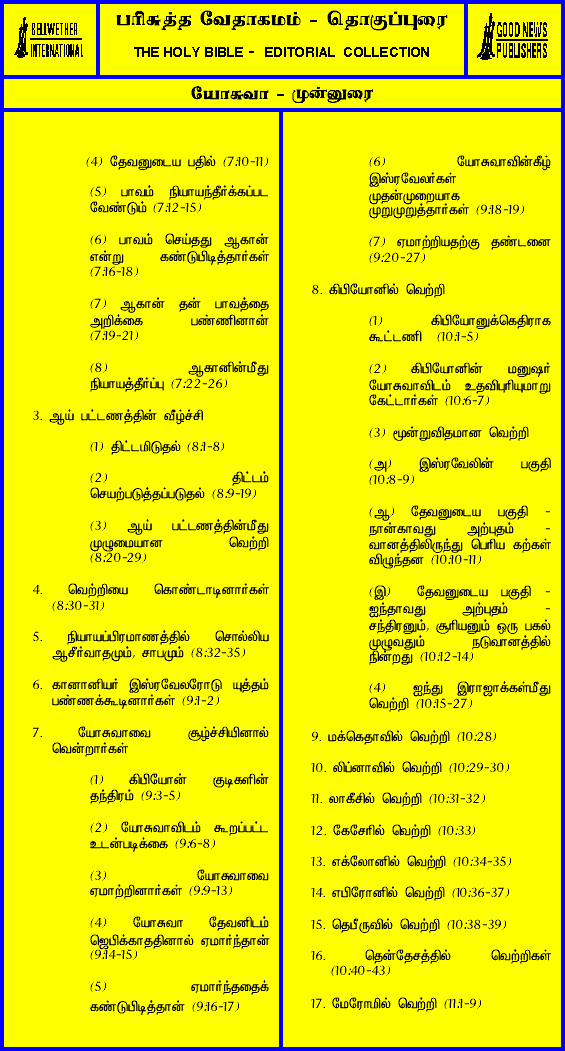 BELLWETHER
INTERNATIONAL
பரிசுத்த வேதாகமம் - தொகுப்புரை
THE HOLY BIBLE - EDITORIAL COLLECTION
GOOD NEWS
PUBLISHERS
யோசுவா - முன்னுரை
(4) தேவனுடைய பதில் (7:10-11)
(5) பாவம் நியாயந்தீர்க்கப்பட
வேண்டும் (7:12-15)
(6) பாவம் செய்தது ஆகான்
என்று கண்டுபிடித்தார்கள்
(7:16-18)
(7) ஆகான் தன் பாவத்தை
அறிக்கை பண்ணினான்
(7:19-21)
(8) ஆகானின்மீது
நியாயத்தீர்ப்பு (7:22-26)
3. ஆய் பட்டணத்தின் வீழ்ச்சி
(1) திட்டமிடுதல் (8:1-8)
(2) திட்டம்
செயற்படுத்தப்படுதல் (8:9-19)
(3) ஆய் பட்டணத்தின்மீது
முழுமையான வெற்றி
(8:20-29)
4. வெற்றியை கொண்டாடினார்கள்
(8:30-31)
5. நியாயப்பிரமாணத்தில் சொல்லிய
ஆசீர்வாதமும், சாபமும் (8:32-35)
6. கானானியர் இஸ்ரவேலரோடு யுத்தம்
பண்ணக்கூடினார்கள் (9:1-2)
7. யோசுவாவை சூழ்ச்சியினால்
வென்றார்கள்
(1) கிபியோன் குடிகளின்
தந்திரம் (9:3-5)
(2) யோசுவாவிடம் கூறப்பட்ட
உடன்படிக்கை (9:6-8)
(3) யோசுவாவை
ஏமாற்றினார்கள் (9:9-13)
(4) யோசுவா தேவனிடம்
ஜெபிக்காததினால் ஏமார்ந்தான்
(9:14-15)
(5) ஏமார்ந்ததைக்
கண்டுபிடித்தான் (9:16-17)
(6) யோசுவாவின்கீழ்
இஸ்ரவேலர்கள்
முதன்முறையாக
முறுமுறுத்தார்கள் (9:18-19)
(7) ஏமாற்றியதற்கு தண்டனை
(9:20-27)
8. கிபியோனில் வெற்றி
(1) கிபியோனுக்கெதிராக
கூட்டணி (10:1-5)
(2) கிபியோனின் மனுஷர்
யோசுவாவிடம் உதவிபுரியுமாறு
கேட்டார்கள் (10:6-7)
(3) மூன்றுவிதமான வெற்றி
(அ) இஸ்ரவேலின் பகுதி
(10:8-9)
(ஆ) தேவனுடைய பகுதி -
நான்காவது அற்புதம் -
வானத்திலிருந்து பெரிய கற்கள்
விழுந்தன (10:10-11)
(இ) தேவனுடைய பகுதி -
ஐந்தாவது அற்புதம் -
சந்திரனும், சூரியனும் ஒரு பகல்
முழுவதும் நடுவானத்தில்
நின்றது (10:12-14)
(4) ஐந்து இராஜாக்கள்மீது
வெற்றி (10:15-27)
9. மக்கெதாவில் வெற்றி (10:28)
10. லிப்னாவில் வெற்றி (10:29-30)
11. லாகீசில் வெற்றி (10:31-32)
12. கேசேரில் வெற்றி (10:33)
13. எக்லோனில் வெற்றி (10:34-35)
14. எபிரோனில் வெற்றி (10:36-37)
15. தெபீருவில் வெற்றி (10:38-39)
16. தென்தேசத்தில் வெற்றிகள்
(10:40-43)
17. மேரோமில் வெற்றி (11:1-9)